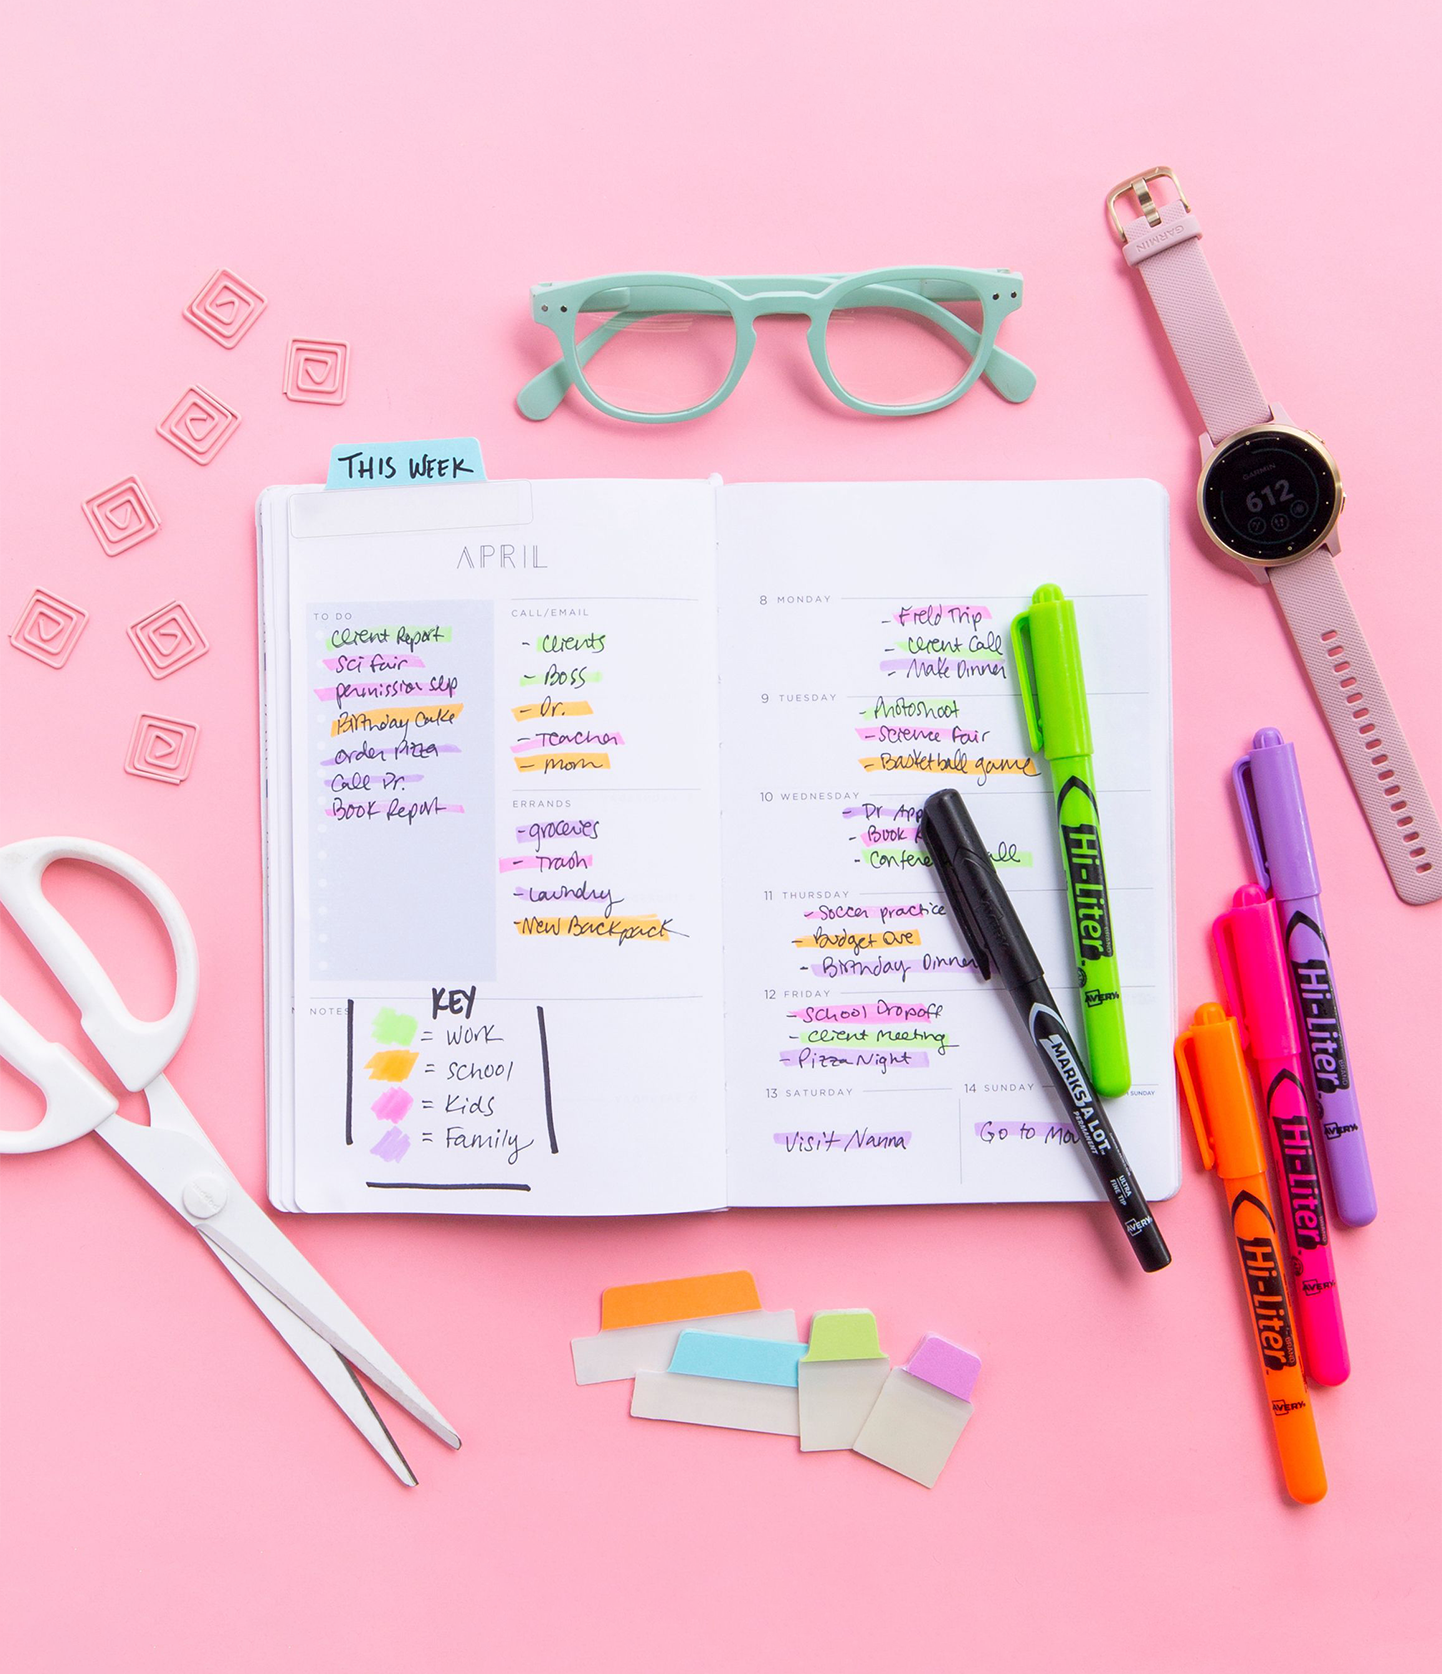 GARMIN
GARMIN
612
THIS WEEK
APRIL
TO DO
Client Report
Sci Fair
permission slip
Birthday Cake
order Pizza
Call Dr.
Book Report
CALL/EMAIL
- Clients
- Boss
- Dr.
- Teacher
- Mom
ERRANDS
- groceries
- Trash
- Laundry
- New Backpack
NOTES
KEY
= work
= school
= Kids
= Family
8 MONDAY
- Field Trip
- Client Call
- Make Dinner
9 TUESDAY
- Photoshoot
- Science Fair
- Basketball game
10 WEDNESDAY
- Dr App
- Book
- Confere all
11 THURSDAY
- Soccer practice
- Budget Due
- Birthday Dinner
12 FRIDAY
- School Dropoff
- Client Meeting
- Pizza Night
13 SATURDAY
Visit Nanna
14 SUNDAY
Go to Mov
SUNDAY
Hi-Liter
BRAND
AVERY
MARKS A LOT
PERMANENT
ULTRA
FINE TIP
AVERY
Hi-Liter
BRAND
AVERY
Hi-Liter
BRAND
AVERY
Hi-Liter
BRAND
AVERY